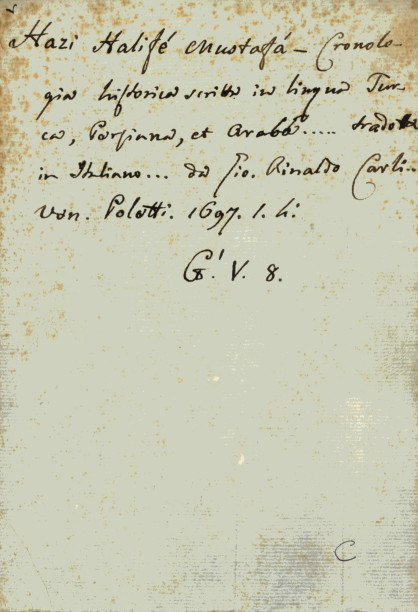 Hazi Halifé Mustafá – Cronolo-
gia historica scritta in lingua Tur-
ca, Persiana, et Araba..... tradotta
in Italiano... da Gio. Rinaldo Carli..
Ven. Poletti. 1697. 1. h.
G. V. 8.
C